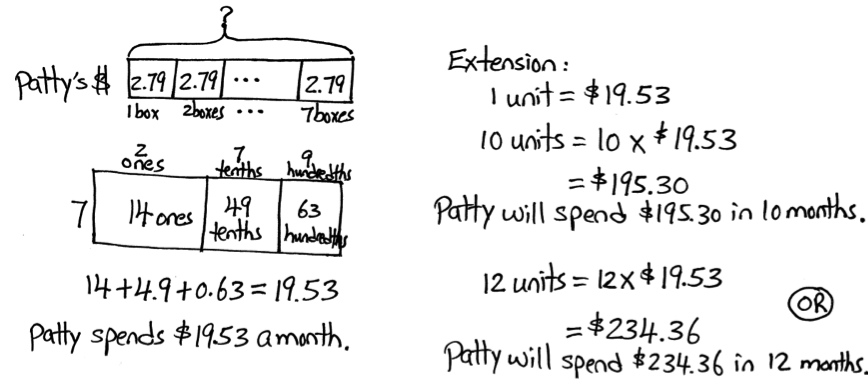 ?
Patty's $ 2.79 2.79 ... 2.79
1 box 2 boxes ... 7 boxes
2 ones 7 tenths 9 hundredths
7 14 ones 49 tenths 63 hundredths
14+4.9+0.63=19.53
Patty spends $19.53 a month.
Extension:
1 unit = $19.53
10 units = 10 x $19.53
= $195.30
Patty will spend $195.30 in 10 months.
12 units = 12 x $19.53
OR
= $234.36
Patty will spend $234.36 in 12 months.